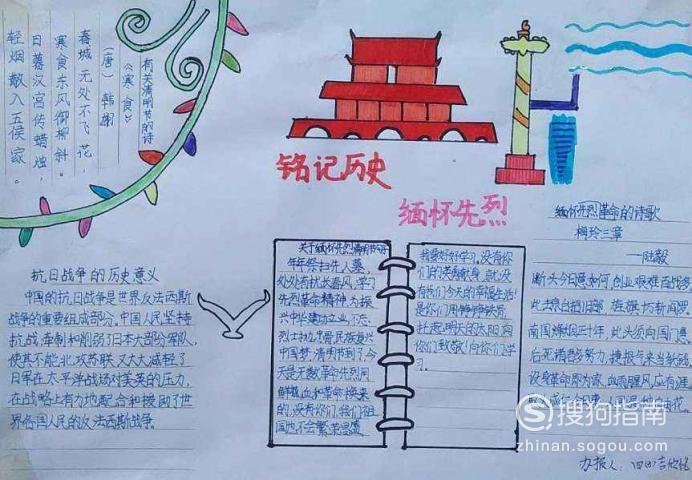 有关清明节的诗
《寒食》
(唐) 韩翃
春城无处不飞花，
寒食东风御柳斜。
日暮汉宫传蜡烛，
轻烟散入五侯家。
铭记历史
缅怀先烈
抗日战争的历史意义
中国的抗日战争是世界反法西斯
战争的重要组成部分。中国人民坚持
抗战,牵制和削弱了日本大部分军队,
使其不能北攻苏联,又大大减轻了
日军在太平洋战场对英美的压力,
在战略上有力地配合和援助了世
界各国人民的反法西斯战争。
关于缅怀先烈清明节
年年祭扫先人墓,
处处 春风,学习
先烈革命精神,为振
兴中华建功立业,不忘
烈士 民族复兴
中国梦,清明节到了,今
天是无数革命先烈用
鲜血和革命换来
的,没有你们,我们祖
国也不会繁荣昌盛
我要好好学习。没有你
们的英勇献身,就没
有我们今天的幸福生活!
是你们用铮铮铁骨
托起明天的太阳,向
你们致敬!向你们学
习。
缅怀先烈革命的诗歌
梅岭三章
—陆毅
断头今日意如何,创业艰难百战多。
此去泉台招旧部,旌旗 万斩阎罗。
南国烽烟正十年,此头须向国门悬。
后死诸君多努力,捷报飞来当纸钱。
设身革命即为家,血雨腥风,应有涯
办报人:四(4)
S 搜狗指南
zhinan.sogou.com